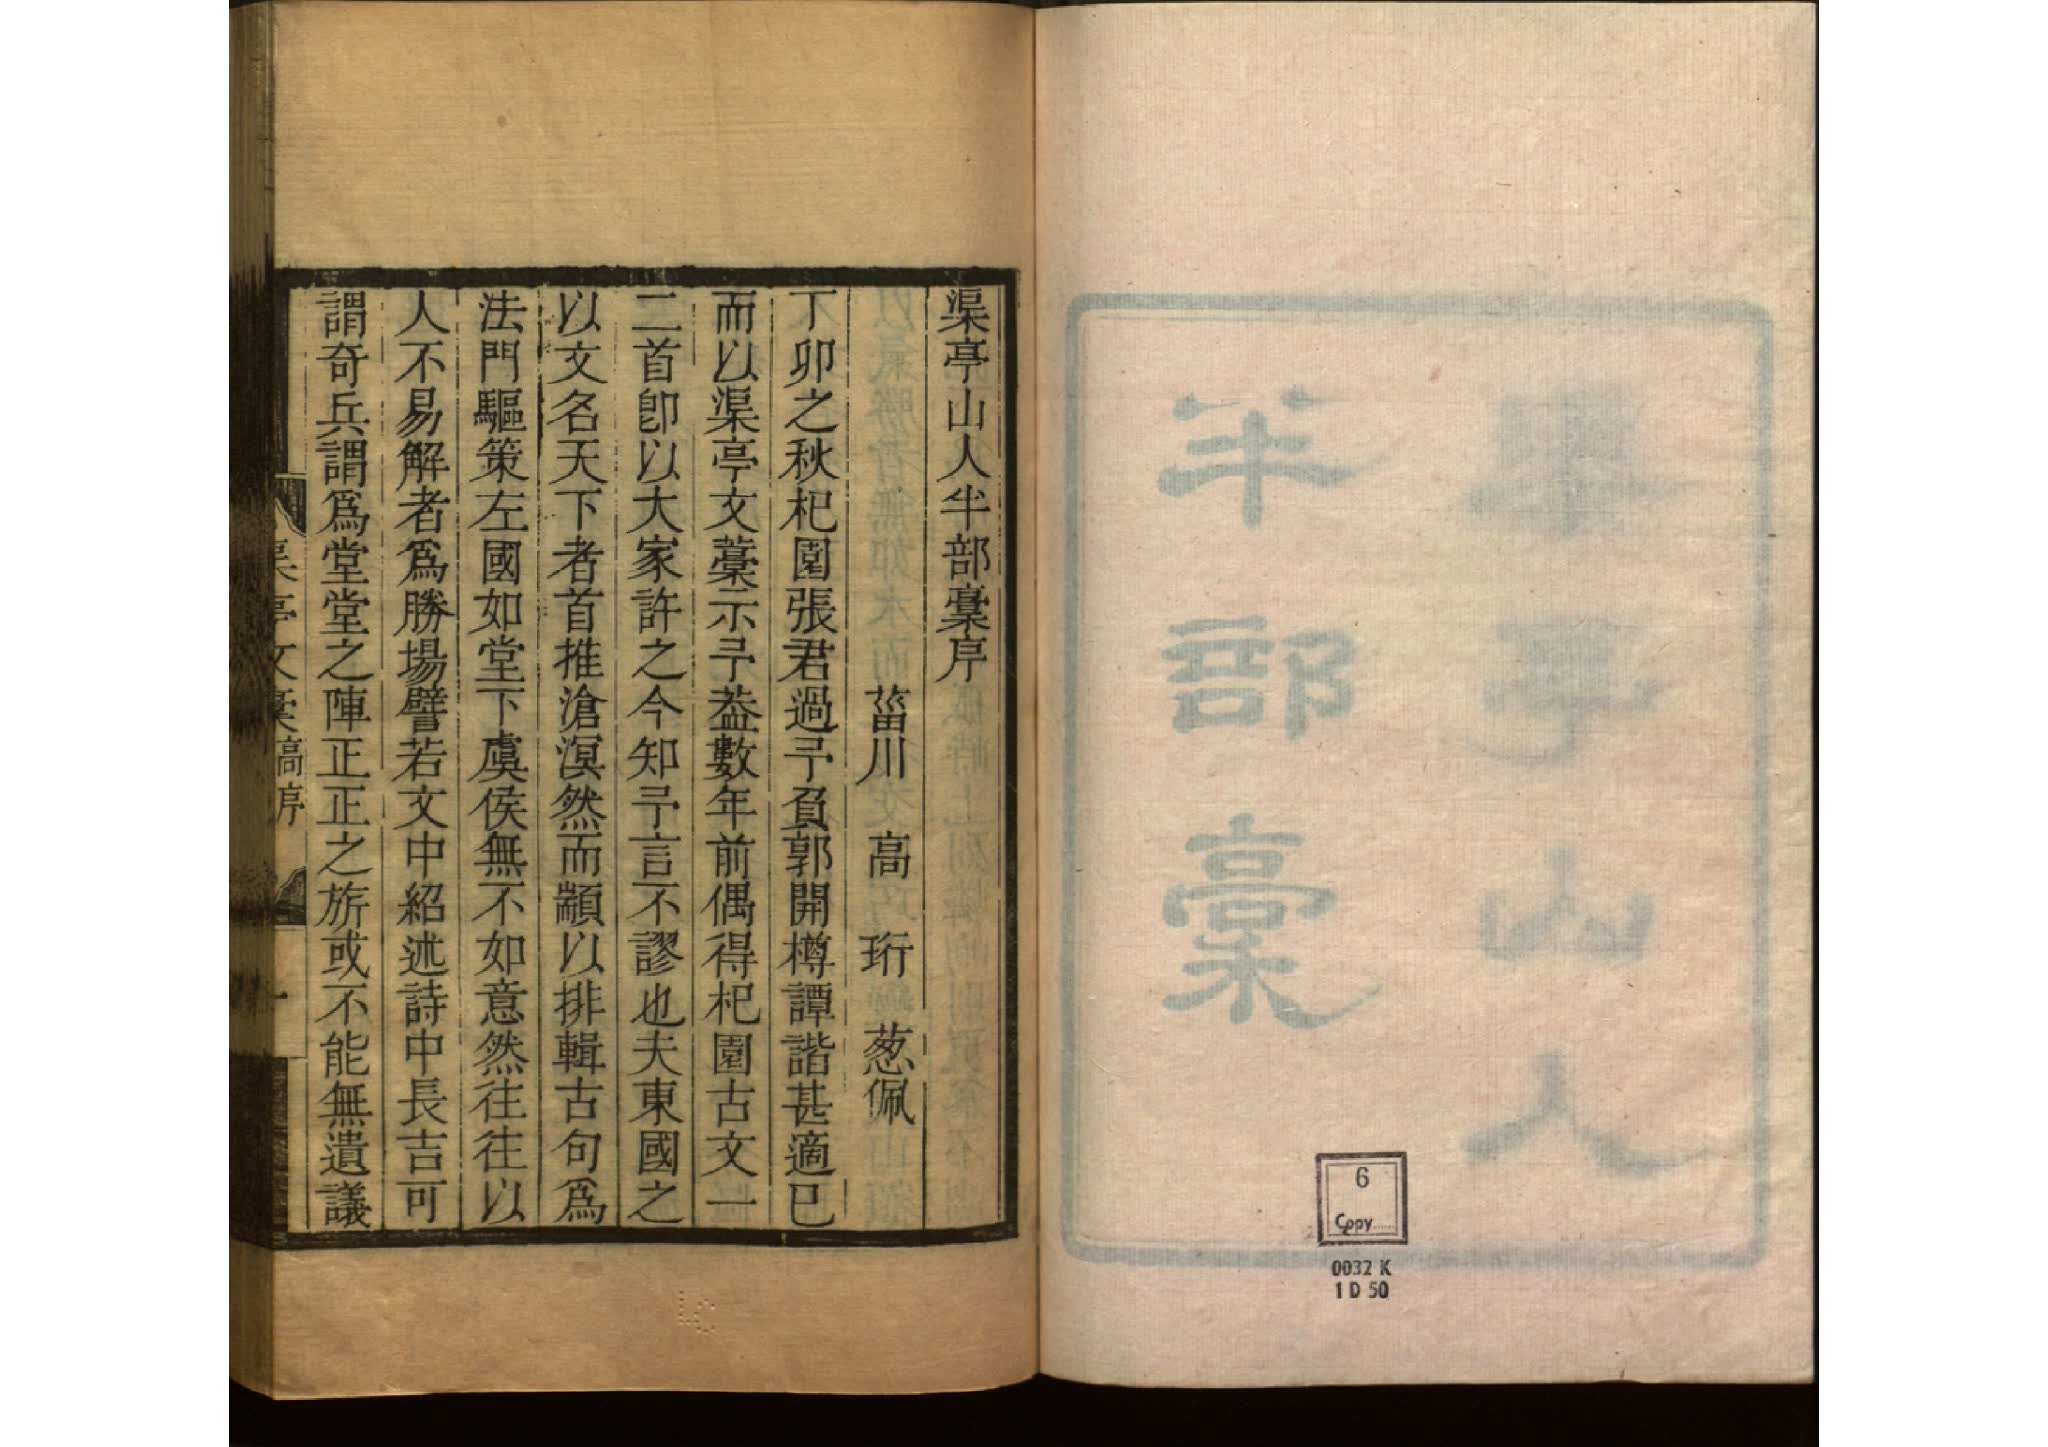 渠亭山人
半部稾
6
Copy
0032 K
1 D 50
渠亭山人半部稾序
菑川 高 珩 葱佩
丁卯之秋杞園張君過予負郭開樽譚諧甚適已
而以渠亭文藁示予葢數年前偶得杞園古文一
二首卽以大家許之今知予言不謬也夫東國之
以文名天下者首推滄溟然而顓以排輯古句爲
法門驅策左國如堂下虞侯無不如意然往往以
人不易解者爲勝場譬若文中紹述詩中長吉可
謂奇兵謂爲堂堂之陣正正之旂或不能無遺議
渠亭文稾 高序 一